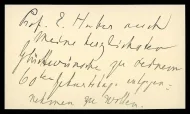 Prof. E. Huber auch
meine herzlichsten
Glückwünsche zu seinem
60ten Geburtstage entgegen-
nehmen zu wollen.